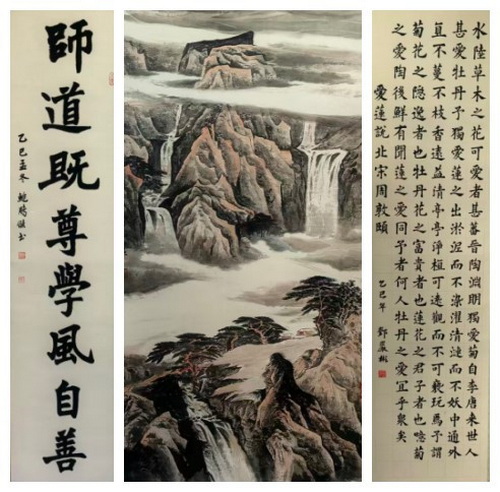 師道既尊學風自善
乙巳孟冬
水陸草木之花可愛者甚蕃晉陶渊明獨愛菊自李唐来世人
甚愛牡丹予獨愛蓮之出淤泥而不染濯清漣而不妖中通外
直不蔓不枝香遠益清亭亭淨植可遠觀而不可褻玩焉予謂
菊花之隐逸者也牡丹花之富貴者也蓮花之君子者也噫菊
之愛陶後鮮有聞蓮之愛同予者何人牡丹之愛宜乎衆矣
愛蓮説北宋周敦頤
乙巳年